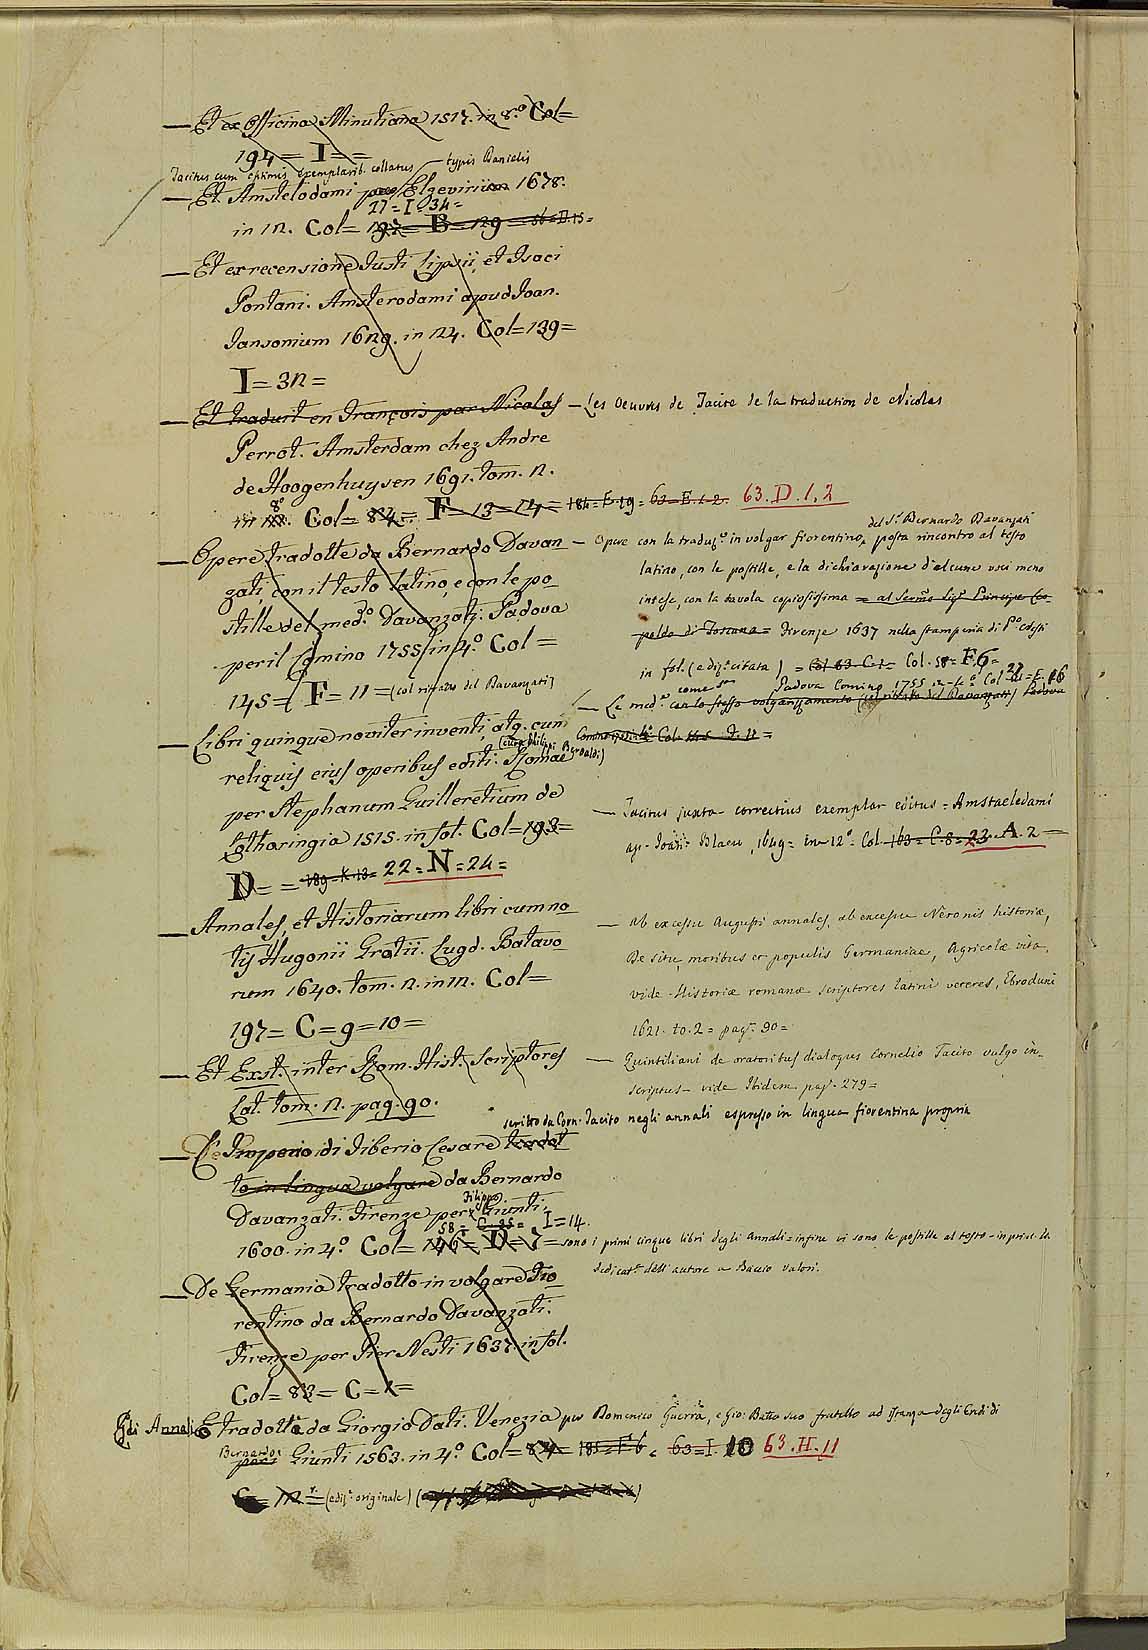 — Et ex Officina Minutiana 1517. in 8.º Col=
194= I= =
Tacitus cum optimis exemplarib. collatus — typis Danielis
— Et Amstelodami Elzevirii 1678.
27=I=34=
in 12. Col= 197= B=129=56=D.15=
— Et ex recensione Justi Lipsii, et Isaci
Pontani. Amsterodami apud Joan.
Jansonium 1629. in 24. Col=139=
I= 32=
— Et traduit en François par Nicolas — Les Oeuvres de Tacite de la traduction de Nicolas
Perrot. Amsterdam chez Andre
de Hoogenhuysen 1691. tom. 2.
in 8º Col= 84= F=13=14= 184=F.19= 63=E.1-2. 63.D.1,2
— Opere tradotte da Bernardo Davan
zati con il testo latino, e con le po
stille del med.º Davanzati. Padova
per il Comino 1755 in 4.º Col=
145= F=11= (col ritratto del Davanzati)
— Opere con la traduzº in volgar fiorentino, posta rincontro al testo
del S.r Bernardo Davanzati
latino, con le postille, e la dichiarazione d'alcune voci meno
intese, con la tavola copiosissima = al Sermo Sigr Principe Leo-
poldo di Toscana = Firenze 1637 nella stamperia di Pº Nesti
in fol. (edizº citata) = Col 83. C=1= Col=58=F.6=
— Le medº con lo stesso volgarizzamento (col ritratto del Davanzati) Padova
come sª Padova Comino 1755 in 4º Col 27=F.16
Comino 1755 in 4º Col. 145 F. 11 =
— Libri quinque noviter inventi, atq. cum
reliquis eius operibus editi. Romae
(cura Philippi Beroaldi)
per Stephanum Guilleretium de
Lotharingia 1515. in fol. Col=193=
D= = 189=K.13= 22=N=24=
— Tacitus juxta correctius exemplar editus = Amstaeledami
ap. Joan. Blaeu, 1649= in 12º= Col. 163=C=8=23.A.2=
— Annales, et Historiarum libri cum no
tis Hugonii Grotii. Lugd. Batavo
rum 1640. tom. 2. in 12. Col=
197= C=9=10=
— Ab excessu Augusti annales, ab excessu Neronis historiæ,
De situ, moribus et populis Germaniae, Agricolæ vita.
vide Historiæ romanæ scriptores latini veteres, Ebroduni
1621. to. 2 = pag. 90 =
— Et Exst. inter Rom. Hist. Scriptores
Lat. tom. 2. pag. 90.
— Quintiliani de oratoribus dialogus Cornelio Tacito vulgo in-
scriptus — vide Ibidem pag. 279=
scritto da Corn. Tacito negli annali espresso in lingua fiorentina propria
— L'Imperio di Tiberio Cesare tradot
to in lingua volgare da Bernardo
Davanzati. Firenze per Filippo Giunti.
58= C=25= I=14.
1600. in 4.º Col= 146= D=7= sono i primi cinque libri degli Annali = infine vi sono le postille al testo = in princ. la
dedicatª dell'autore a Baccio Valori.
— De Germania tradotto in volgare Fio
rentino da Bernardo Davanzati.
Firenze per Pier Nesti 1637. in fol.
Col= 83= C=1=
Gli Annali tradotti da Giorgio Dati. Venezia per Domenico Guerra, e Gio: Batta suo fratello ad istanza degli Eredi di
Bernardo Giunti 1563. in 4.º Col= 84= 185=F.6= 63=I.10 63.H.11
C= 12= (edizº originale)